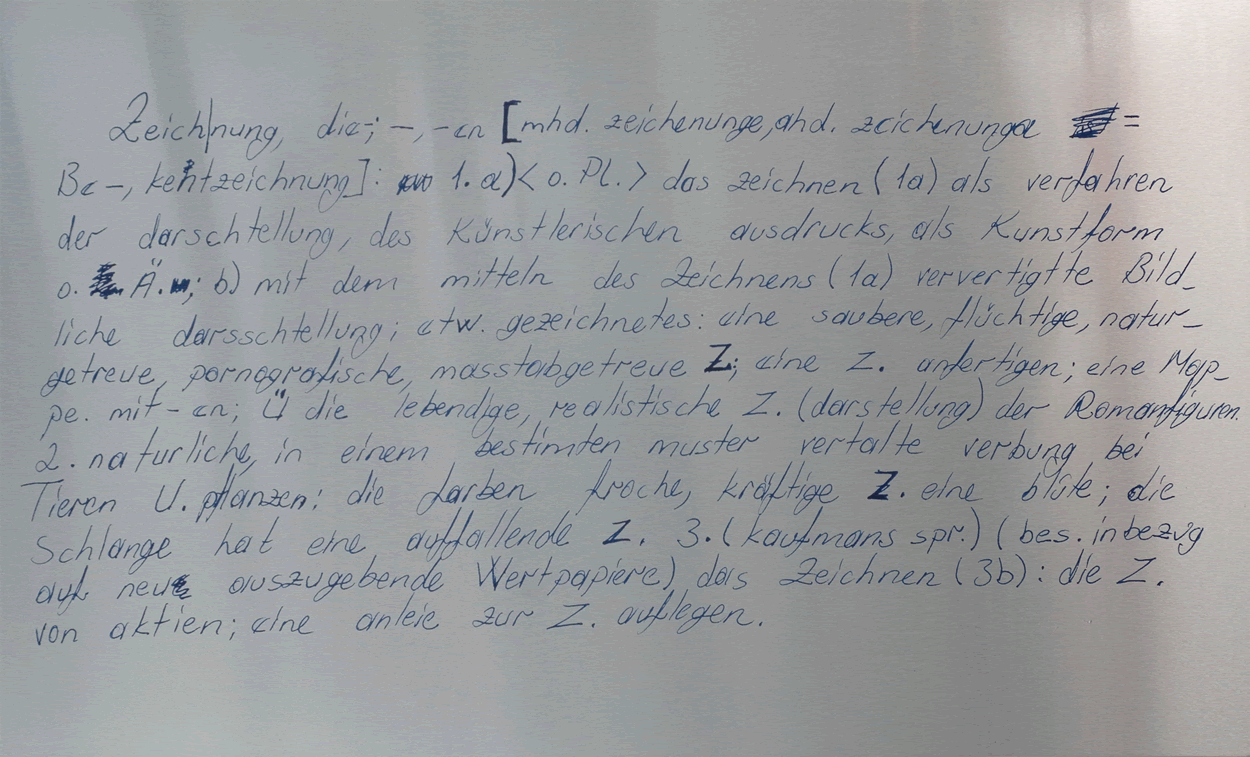 Zeich|nung, die; –, -en [mhd. zeichenunge, ahd. zeichenunga =
Be –, kentzeichnung]: 1. a) < o. Pl. > das zeichnen (1a) als verfahren
der darschtellung, des Künstlerischen ausdrucks, als Kunstform
o. Ä.; b) mit dem mitteln des Zeichnens (1a) ververtigtte Bild_
liche darsschtellung; etw. gezeichnetes: eine saubere, flüchtige, natur_
getreue, pornografische, masstabgetreue Z; eine Z. anfertigen; eine Map_
pe. mit - en; Ü die lebendige, realistische Z. (darstellung) der Romanfiguren.
2. naturliche, in einem bestimten muster vertalte verbung bei
Tieren U. pflanzen: die farben froche, kräftige Z. eine blüte; die
Schlange hat eine auffallende Z. 3. (kaufmans spr.) (bes. inbezug
auf neue auszugebende Wertpapiere) das Zeichnen (3b): die Z.
von aktien; eine anleie zur Z. auflegen.